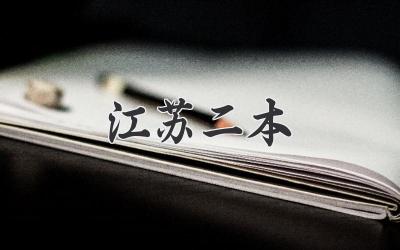 江苏二本